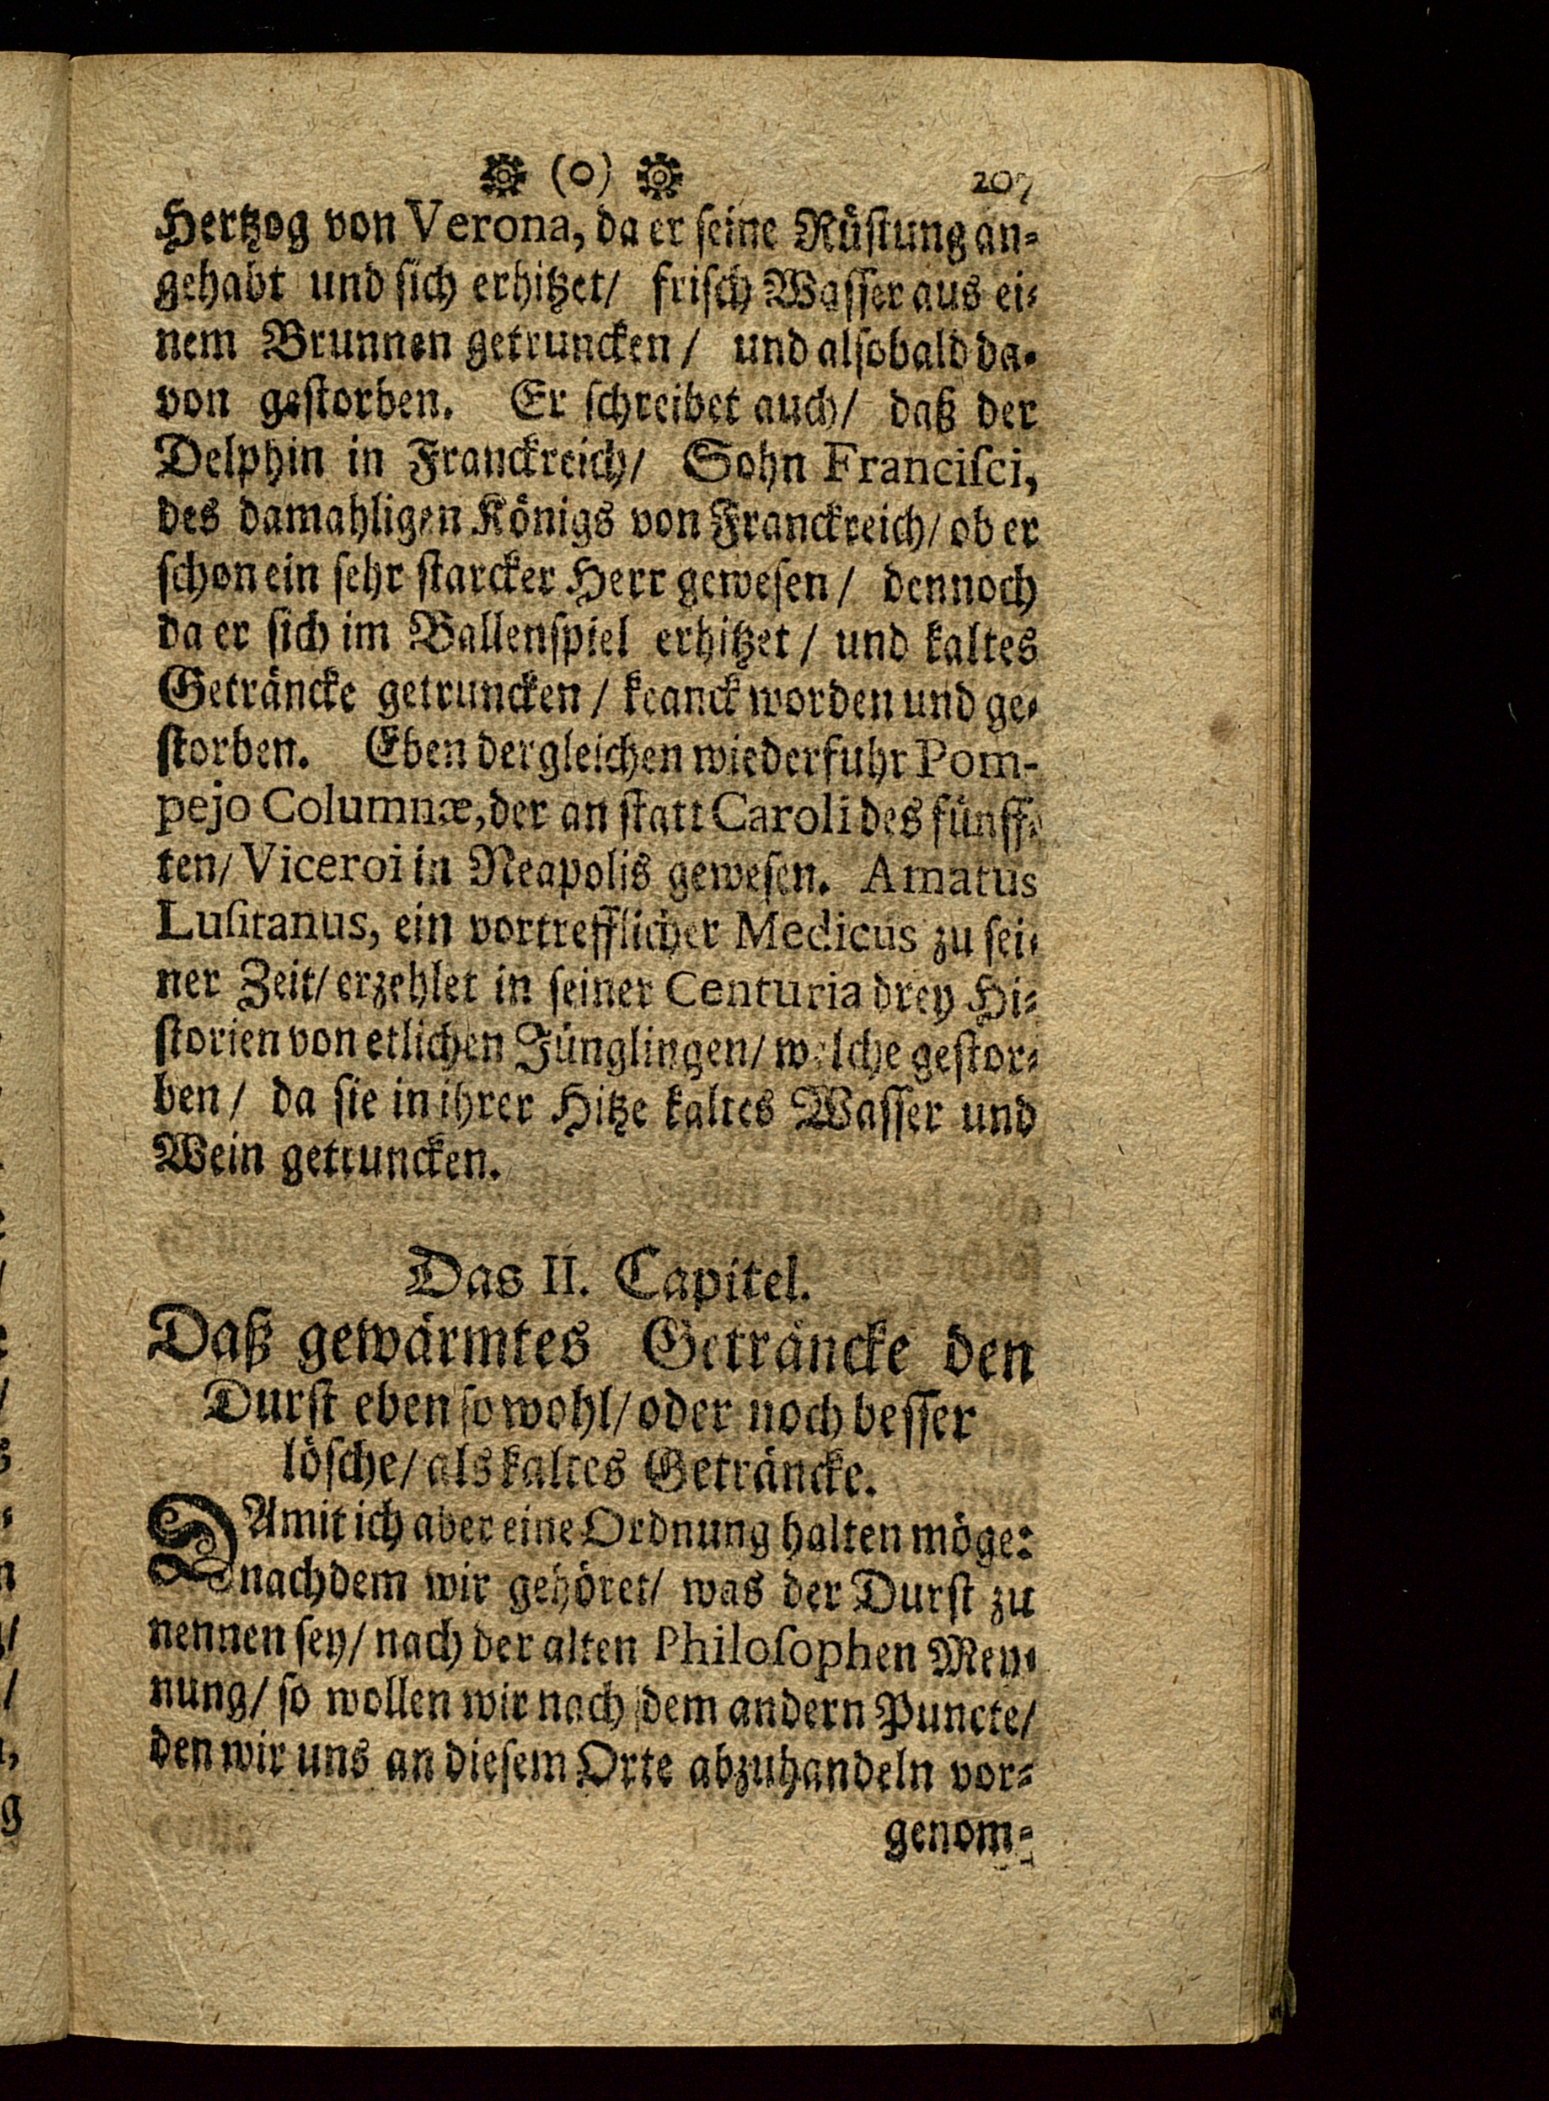 (o) 207
Hertzog von Verona, da er seine Rüstung an-
gehabt und sich erhitzet/ frisch Wasser aus ei-
nem Brunnen getruncken/ und alsobald da-
von gestorben. Er schreibet auch/ daß der
Delphin in Franckreich/ Sohn Francisci,
des damahligen Königs von Franckreich/ ob er
schon ein sehr starcker Herr gewesen/ dennoch
da er sich im Ballenspiel erhitzet/ und kaltes
Geträncke getruncken/ kranck worden und ge-
storben. Eben dergleichen wiederfuhr Pom-
pejo Columnæ, der an statt Caroli des fünff-
ten/ Viceroi in Neapolis gewesen. Amatus
Lusitanus, ein vortrefflicher Medicus zu sei-
ner Zeit/ erzehlet in seiner Centuria drey Hi-
storien von etlichen Jünglingen/ welche gestor-
ben/ da sie in ihrer Hitze kaltes Wasser und
Wein getruncken.
Das II. Capitel.
Daß gewärmtes Geträncke den
Durst eben so wohl/ oder noch besser
lösche/ als kaltes Geträncke.
DAmit ich aber eine Ordnung halten möge:
nachdem wir gehöret/ was der Durst zu
nennen sey/ nach der alten Philosophen Mey-
nung/ so wollen wir nach dem andern Puncte/
den wir uns an diesem Orte abzuhandeln vor-
genom-